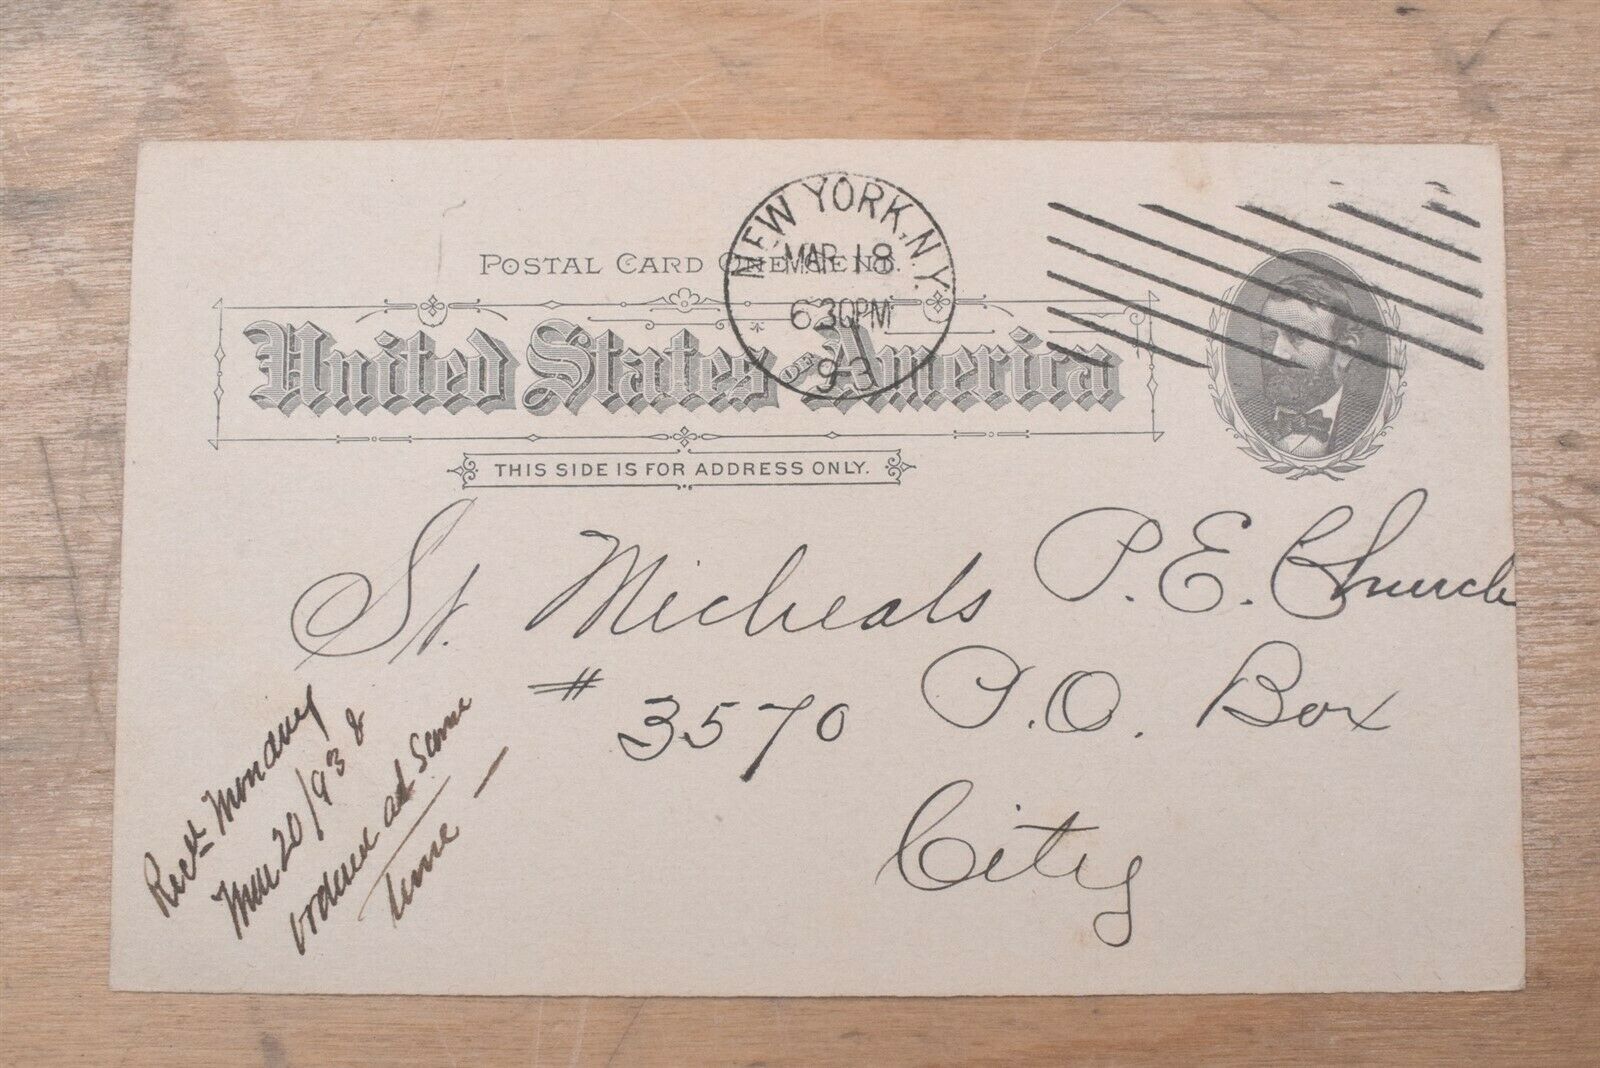 POSTAL CARD ONE CENT.
NEW YORK, N.Y.
MAR 18
630PM
93
United States of America
THIS SIDE IS FOR ADDRESS ONLY.
St. Micheals P. E. Church
# 3570 P.O. Box
City
Recd Monday
Mar 20/93 &
ordered ad same
time